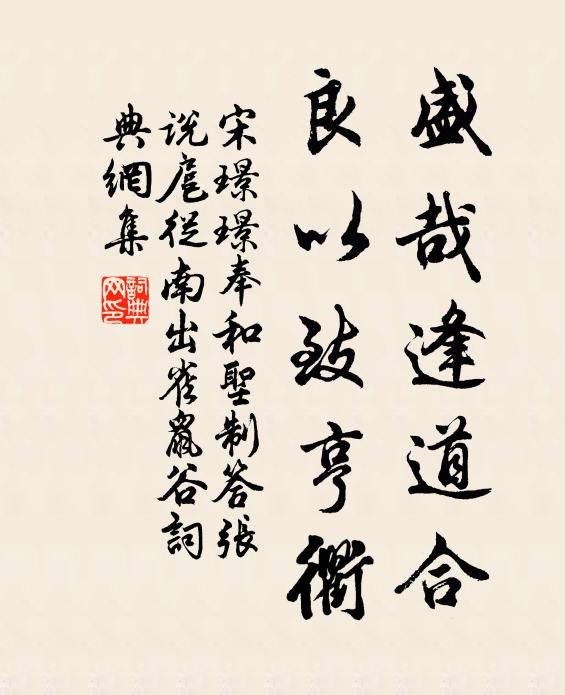 盛哉逢道合
良以致亨衢
宋璟璟奉和聖制答張
説扈從南出雀鼠谷詞
典網集
詞典網印